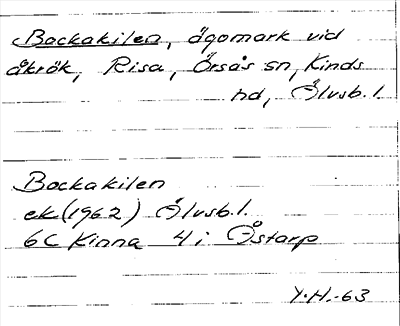 Backakilen, ägomark vid
åkrök, Risa, Örsås sn, Kinds
hd, Älvsb. l.
Backakilen
ek (1962) Älvsb. l.
6C Kinna 4 i Åstarp
Y.H.-63